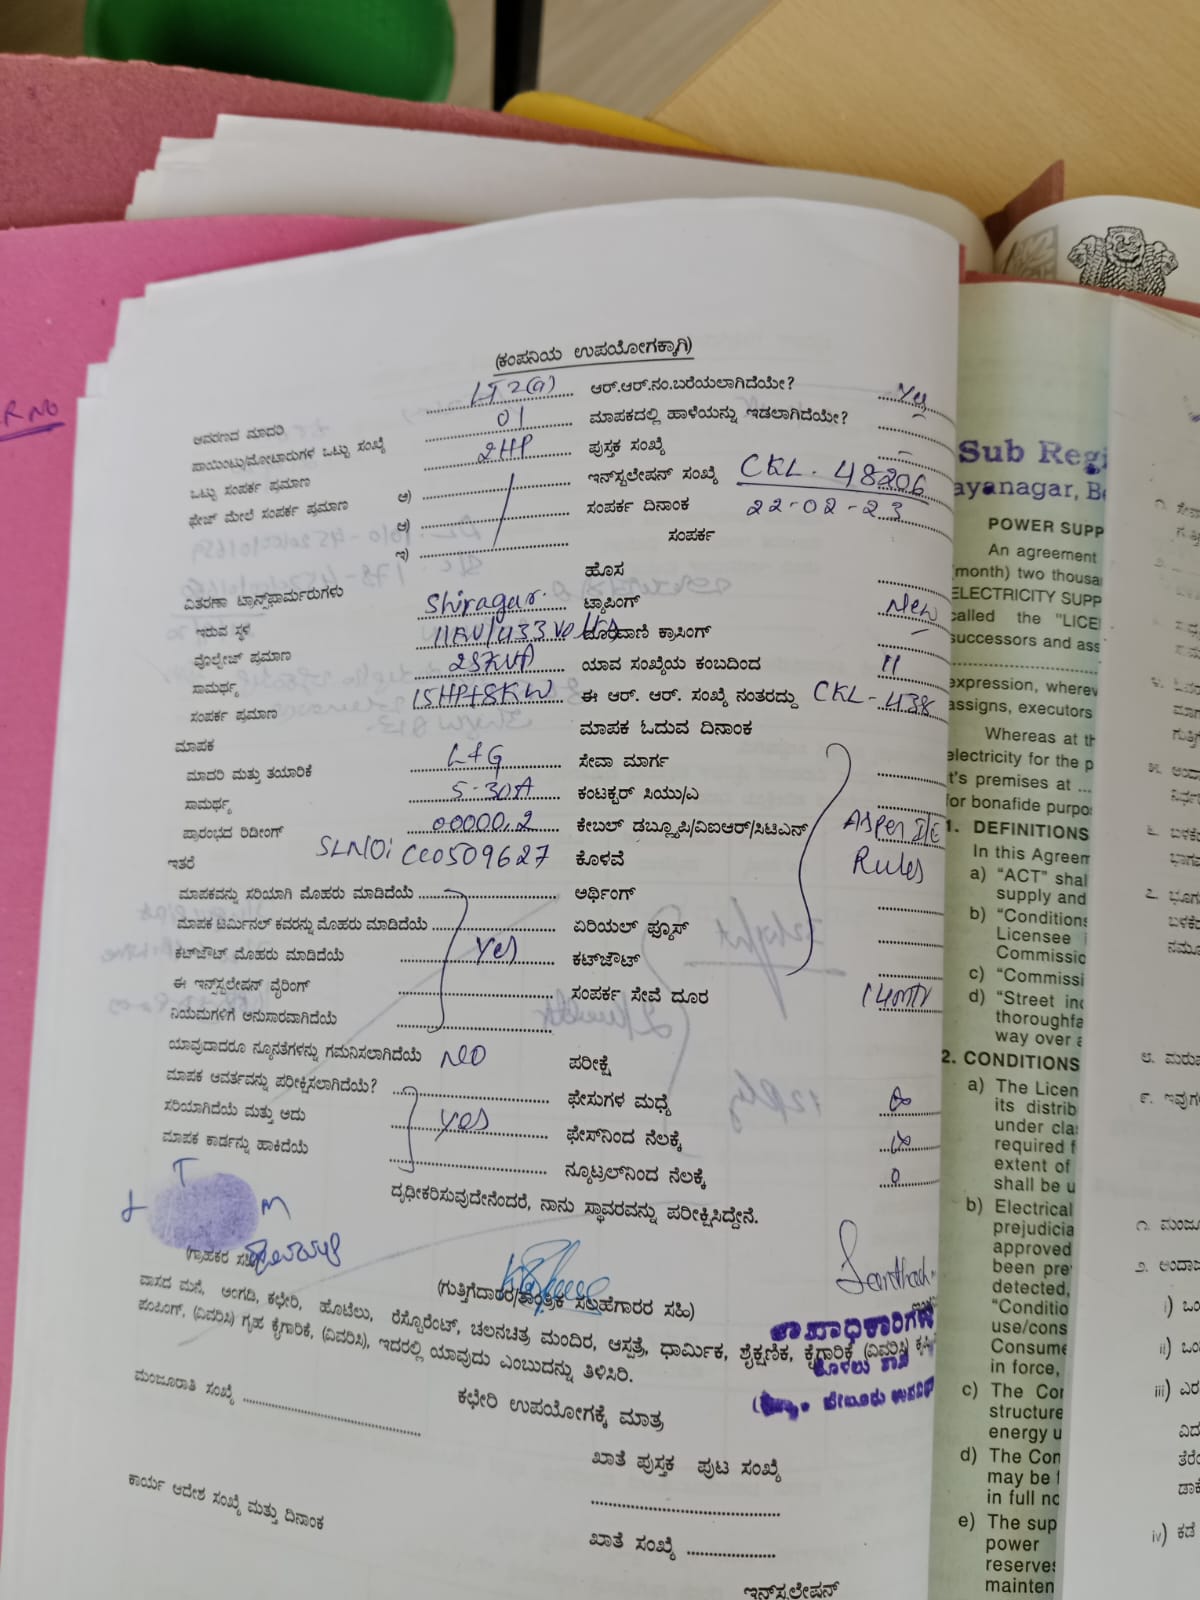 (ಕಂಪನಿಯ ಉಪಯೋಗಕ್ಕಾಗಿ)
ಆವರಣದ ಮಾದರಿ LT2(a) ಆರ್.ಆರ್.ನಂ.ಬರೆಯಲಾಗಿದೆಯೇ? Yes
ಪಾಯಿಂಟ್ಸು/ಮೋಟಾರುಗಳ ಒಟ್ಟು ಸಂಖ್ಯೆ 01 ಮಾಪಕದಲ್ಲಿ ಹಾಳೆಯನ್ನು ಇಡಲಾಗಿದೆಯೇ?
ಒಟ್ಟು ಸಂಪರ್ಕ ಪ್ರಮಾಣ 2HP ಪುಸ್ತಕ ಸಂಖ್ಯೆ -
ಫೇಜ್ ಮೇಲೆ ಸಂಪರ್ಕ ಪ್ರಮಾಣ ಅ) ಇನ್‌ಸ್ಟಲೇಷನ್ ಸಂಖ್ಯೆ CKL - 48206
ಆ) ಸಂಪರ್ಕ ದಿನಾಂಕ 22-02-23
ಇ) ಸಂಪರ್ಕ
ವಿತರಣಾ ಟ್ರಾನ್ಸ್‌ಫಾರ್ಮರುಗಳು ಹೊಸ
ಇರುವ ಸ್ಥಳ Shiragar. ಟ್ಯಾಪಿಂಗ್ New
ವೊಲ್ಟೇಜ್ ಪ್ರಮಾಣ 11KV/433 Volts ದೂರವಾಣಿ ಕ್ರಾಸಿಂಗ್ -
ಸಾಮರ್ಥ್ಯ 25KVA ಯಾವ ಸಂಖ್ಯೆಯ ಕಂಬದಿಂದ 11
ಸಂಪರ್ಕ ಪ್ರಮಾಣ 15HP+8KW ಈ ಆರ್. ಆರ್. ಸಂಖ್ಯೆ ನಂತರದ್ದು CKL-438
ಮಾಪಕ ಮಾಪಕ ಓದುವ ದಿನಾಂಕ
ಮಾದರಿ ಮತ್ತು ತಯಾರಿಕೆ L+G ಸೇವಾ ಮಾರ್ಗ
ಸಾಮರ್ಥ್ಯ 5-30A ಕಂಟಕ್ಟರ್ ಸಿಯು/ಎ
ಪ್ರಾರಂಭದ ರಿಡೀಂಗ್ 00000.2 ಕೇಬಲ್ ಡಬ್ಲ್ಯೂಪಿ/ವಿಐಆರ್/ಸಿಟಿಎಸ್ As per I/E
ಇತರೆ SLNO: CC0509627 ಕೊಳವೆ Rules
ಮಾಪಕವನ್ನು ಸರಿಯಾಗಿ ಮೊಹರು ಮಾಡಿದೆಯೆ ಅರ್ಥಿಂಗ್
ಮಾಪಕ ಟರ್ಮಿನಲ್ ಕವರನ್ನು ಮೊಹರು ಮಾಡಿದೆಯೆ ಏರಿಯಲ್ ಫ್ಯೂಸ್
ಕಟ್‌ಔಟ್ ಮೊಹರು ಮಾಡಿದೆಯೆ Yes ಕಟ್‌ಔಟ್
ಈ ಇನ್ಸ್‌ಟಲೇಷನ್ ವೈರಿಂಗ್ ಸಂಪರ್ಕ ಸೇವೆ ದೂರ
ನಿಯಮಗಳಿಗೆ ಅನುಸಾರವಾಗಿದೆಯೆ
ಯಾವುದಾದರೂ ನ್ಯೂನತೆಗಳನ್ನು ಗಮನಿಸಲಾಗಿದೆಯೆ NO ಪರೀಕ್ಷೆ
ಮಾಪಕ ಆವರ್ತವನ್ನು ಪರೀಕ್ಷಿಸಲಾಗಿದೆಯೆ? ಫೇಸುಗಳ ಮಧ್ಯೆ
ಸರಿಯಾಗಿದೆಯೆ ಮತ್ತು ಅದು Yes ಫೇಸ್‌ನಿಂದ ನೆಲಕ್ಕೆ
ಮಾಪಕ ಕಾರ್ಡನ್ನು ಹಾಕಿದೆಯೆ ನ್ಯೂಟ್ರಲ್‌ನಿಂದ ನೆಲಕ್ಕೆ 0
ದೃಢೀಕರಿಸುವುದೇನೆಂದರೆ, ನಾನು ಸ್ಥಾವರವನ್ನು ಪರೀಕ್ಷಿಸಿದ್ದೇನೆ.
L T M
(ಗ್ರಾಹಕರ ಸಹಿ)
(ಗುತ್ತಿಗೆದಾರರ/ತಾಂತ್ರಿಕ ಸಲಹೆಗಾರರ ಸಹಿ)
ವಾಸದ ಮನೆ, ಅಂಗಡಿ, ಕಛೇರಿ, ಹೊಟೆಲು, ರೆಸ್ಟೊರೆಂಟ್, ಚಲನಚಿತ್ರ ಮಂದಿರ, ಆಸ್ಪತ್ರೆ, ಧಾರ್ಮಿಕ, ಶೈಕ್ಷಣಿಕ, ಕೈಗಾರಿಕೆ (ವಿವರಿಸಿ)
ಪಂಪಿಂಗ್, (ವಿವರಿಸಿ) ಗೃಹ ಕೈಗಾರಿಕೆ, (ವಿವರಿಸಿ), ಇದರಲ್ಲಿ ಯಾವುದು ಎಂಬುದನ್ನು ತಿಳಿಸಿರಿ.
ಮಂಜೂರಾತಿ ಸಂಖ್ಯೆ
ಕಛೇರಿ ಉಪಯೋಗಕ್ಕೆ ಮಾತ್ರ
ಖಾತೆ ಪುಸ್ತಕ ಪುಟ ಸಂಖ್ಯೆ
ಕಾರ್ಯ ಆದೇಶ ಸಂಖ್ಯೆ ಮತ್ತು ದಿನಾಂಕ
ಖಾತೆ ಸಂಖ್ಯೆ
ಇನ್‌ಸ್ಟಲೇಷನ್
R NO
Sub Regi
ayanagar, Be
POWER SUPP
An agreement
(month) two thousa
ELECTRICITY SUPP
called the "LICE
successors and ass
expression, wherev
assigns, executors
Whereas at th
electricity for the p
t's premises at ...
for bonafide purpo
1. DEFINITIONS
In this Agreem
a) "ACT" shal
supply and
b) "Conditions
Licensee
Commissic
c) "Commissi
d) "Street inc
thoroughfa
way over a
2. CONDITIONS
a) The Licen
its distrib
under cla
required f
extent of
shall be u
b) Electrical
prejudicia
approved
been pre
detected,
"Conditio
use/cons
Consume
in force,
c) The Cor
structure
energy u
d) The Con
may be f
in full no
e) The sup
power
reserves
mainten